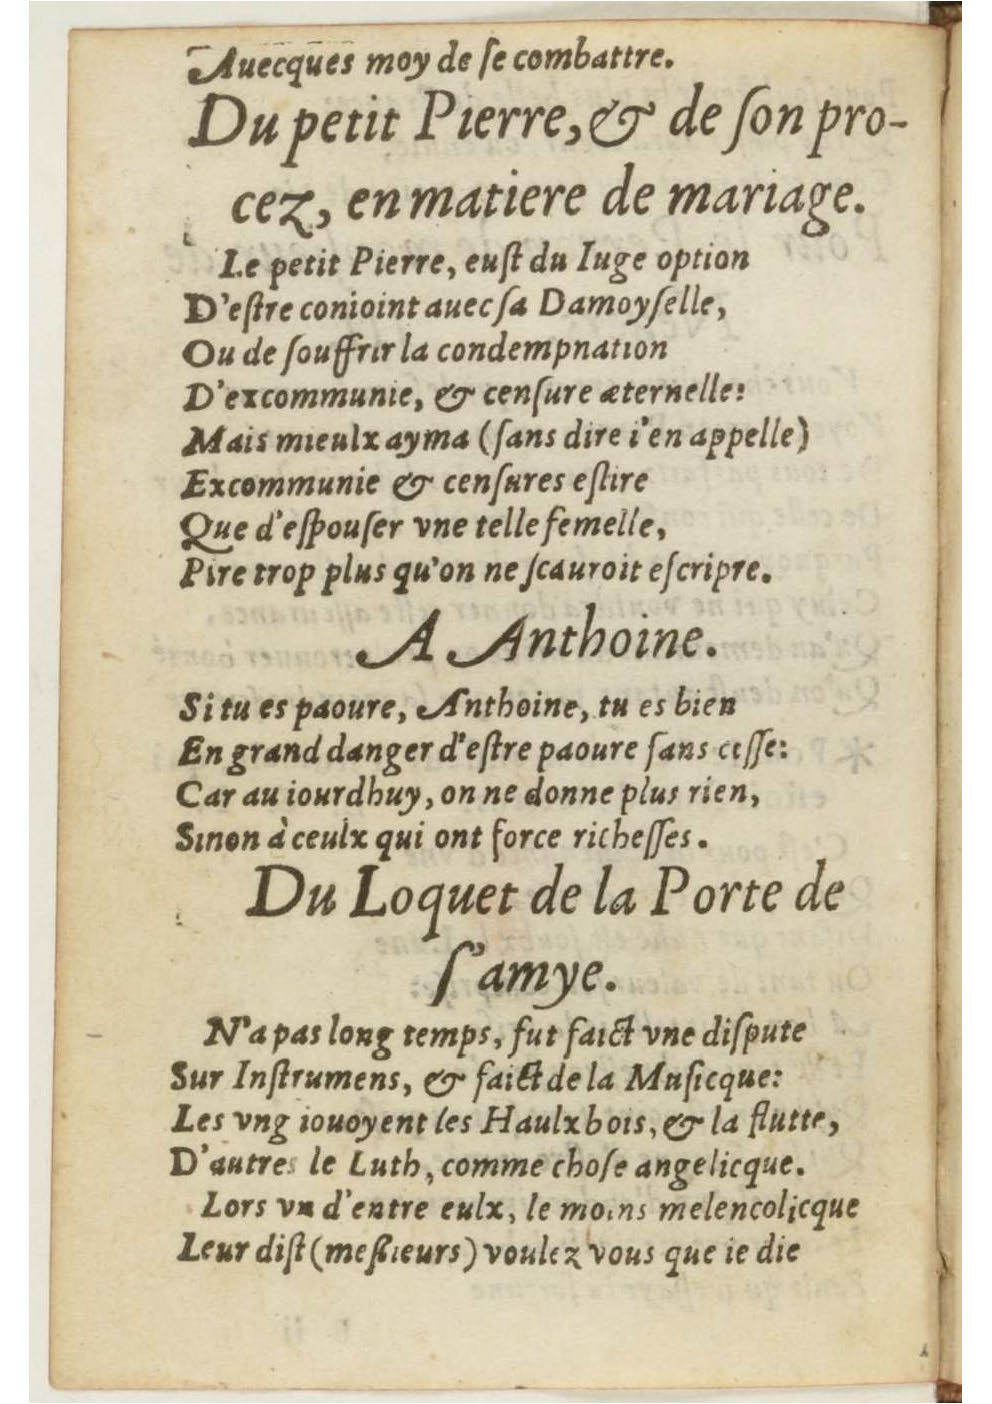 Auecques moy de ſe combattre.
Du petit Pierre, & de ſon pro-
cez, en matiere de mariage.
Le petit Pierre, euſt du Iuge option
D'eſtre conioint auec ſa Damoyſelle,
Ou de ſouffrir la condempnation
D'excommunie, & cenſure æternelle:
Mais mieulx ayma (ſans dire i'en appelle)
Excommunie & cenſures eſlire
Que d'eſpouſer vne telle femelle,
Pire trop plus qu'on ne ſcauroit eſcripre.
A Anthoine.
Si tu es paoure, Anthoine, tu es bien
En grand danger d'eſtre paoure ſans ceſſe:
Car au iourdhuy, on ne donne plus rien,
Sinon à ceulx qui ont force richeſſes.
Du Loquet de la Porte de
ſ'amye.
N'a pas long temps, fut faict vne diſpute
Sur Inſtrumens, & faict de la Muſicque:
Les vng iouoyent les Haulxbois, & la flutte,
D'autres le Luth, comme choſe angelicque.
Lors vn d'entre eulx, le moins melencolicque
Leur diſt (meſsieurs) voulez vous que ie die